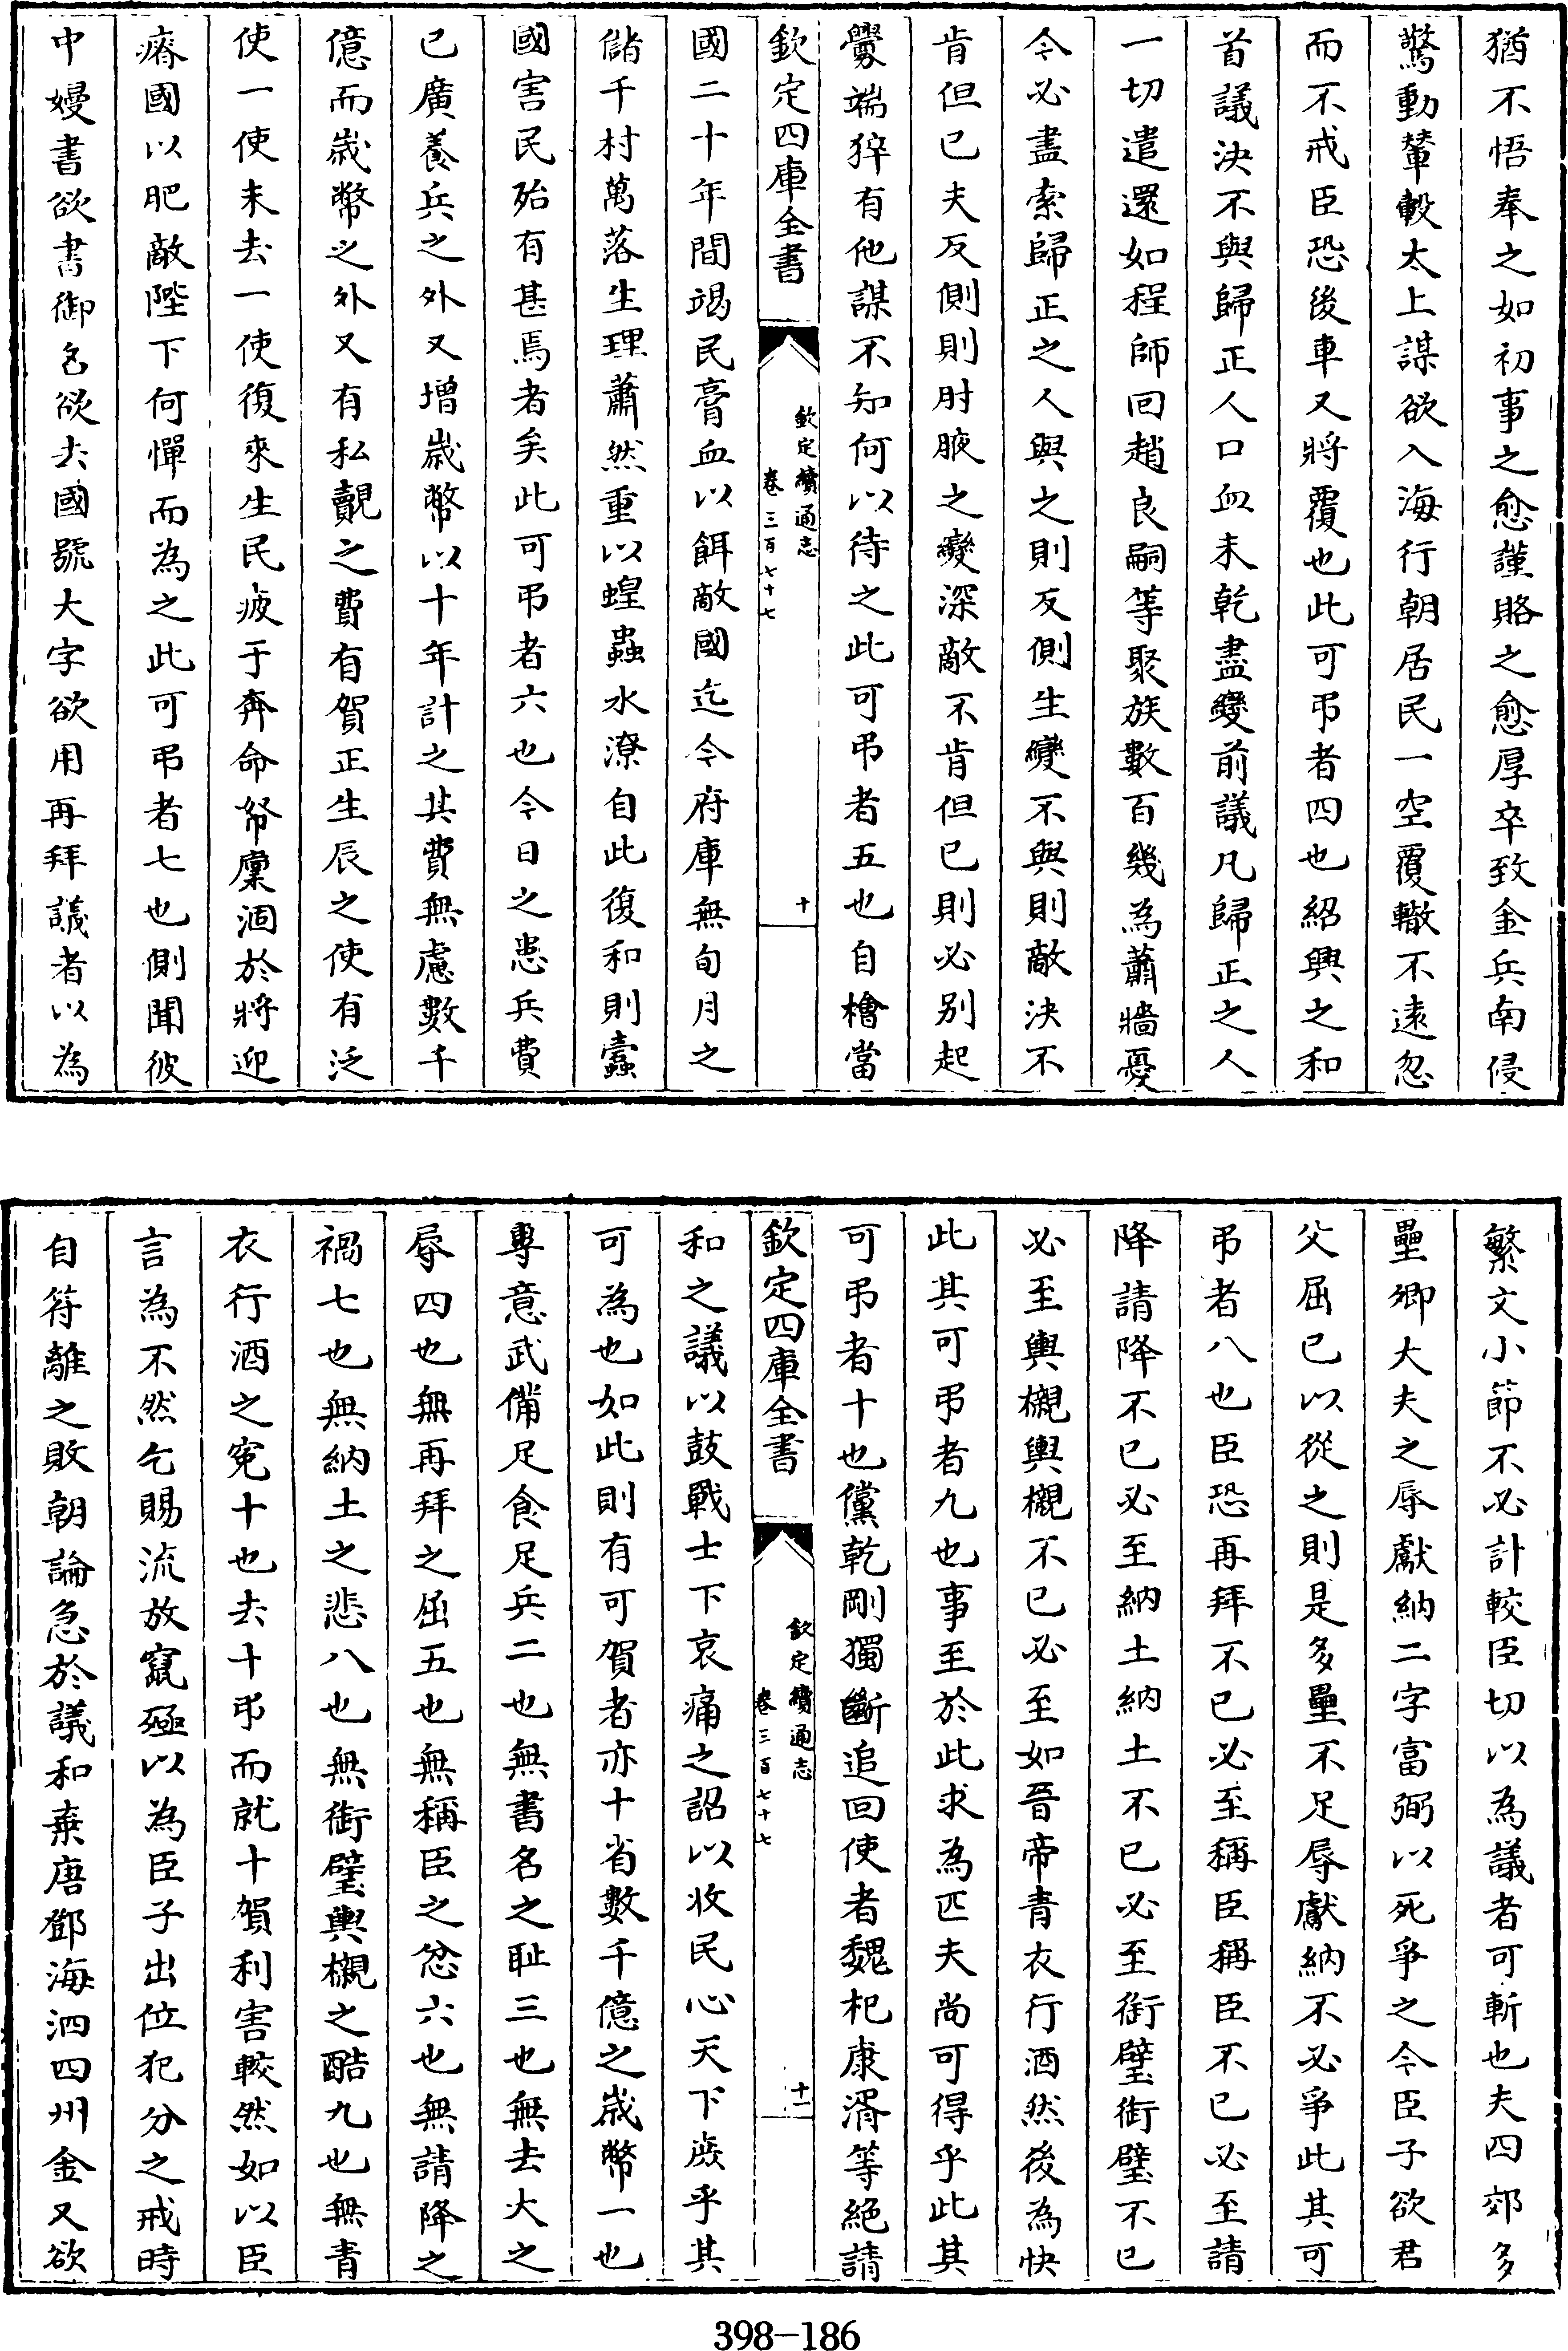 猶不悟奉之如初事之愈謹賂之愈厚卒致金兵南侵
驚動輦轂太上謀欲入海行朝居民一空覆轍不遠忽
而不戒臣恐後車又將覆也此可弔者四也紹興之和
首議決不與歸正人口血未乾盡變前議凡歸正之人
一切遣還如程師回趙良嗣等聚族數百幾為蕭牆憂
今必盡索歸正之人與之則反側生變不與則敵決不
肯但已夫反側則肘腋之變深敵不肯但已則必别起
釁端猝有他謀不知何以待之此可弔者五也自檜當
欽定四庫全書
欽定續通志
卷三百七十七
十
國二十年間竭民膏血以餌敵國迄今府庫無旬月之
儲千村萬落生理蕭然重以蝗蟲水潦自此復和則蠹
國害民殆有甚焉者矣此可弔者六也今日之患兵費
已廣養兵之外又增歲幣以十年計之其費無慮數千
億而歲幣之外又有私覿之費有賀正生辰之使有泛
使一使未去一使復來生民疲于奔命帑廩涸於將迎
瘠國以肥敵陛下何憚而為之此可弔者七也側聞彼
中嫚書欲書御名欲去國號大字欲用再拜議者以為
繁文小節不必計較臣切以為議者可斬也夫四郊多
壘卿大夫之辱獻納二字富弼以死爭之今臣子欲君
父屈已以從之則是多壘不足辱獻納不必爭此其可
弔者八也臣恐再拜不已必至稱臣稱臣不已必至請
降請降不已必至納土納土不已必至銜璧銜璧不已
必至輿櫬輿櫬不已必至如晉帝青衣行酒然後為快
此其可弔者九也事至於此求為匹夫尚可得乎此其
可弔者十也儻乾剛獨斷追回使者魏杞康湑等絕請
欽定四庫全書
欽定續通志
卷三百七十七
十一
和之議以鼓戰士下哀痛之詔以收民心天下庶乎其
可為也如此則有可賀者亦十省數千億之歲幣一也
專意武備足食足兵二也無書名之恥三也無去大之
辱四也無再拜之屈五也無稱臣之忿六也無請降之
禍七也無納土之悲八也無銜璧輿櫬之酷九也無青
衣行酒之寃十也去十弔而就十賀利害較然如以臣
言為不然乞賜流放竄殛以為臣子出位犯分之戒時
自符離之敗朝論急於議和棄唐鄧海泗四州金又欲
398-186